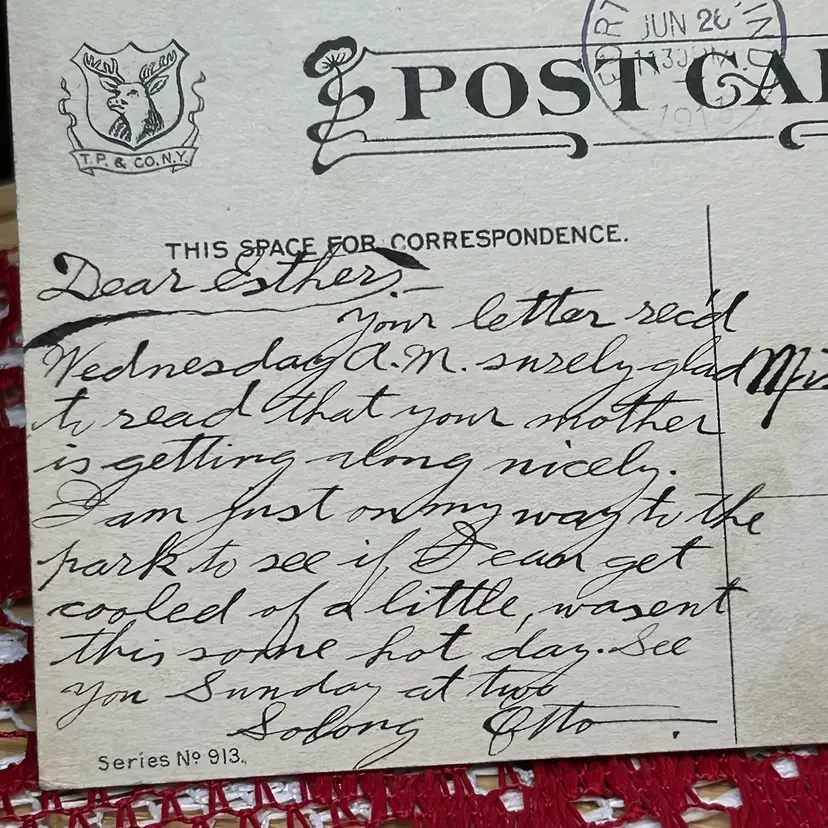 JUN 26
1130
191
T. P. & CO. N.Y.
POST CA
THIS SPACE FOR CORRESPONDENCE.
Dear Esther,
Your letter rec'd
Wednesday A.M. surely glad
to read that your mother
is getting along nicely.
I am just on my way to the
park to see if I can get
cooled of a little, wasent
this some hot day. See
you Sunday at two
Solong Otto
Mis
Series No 913.